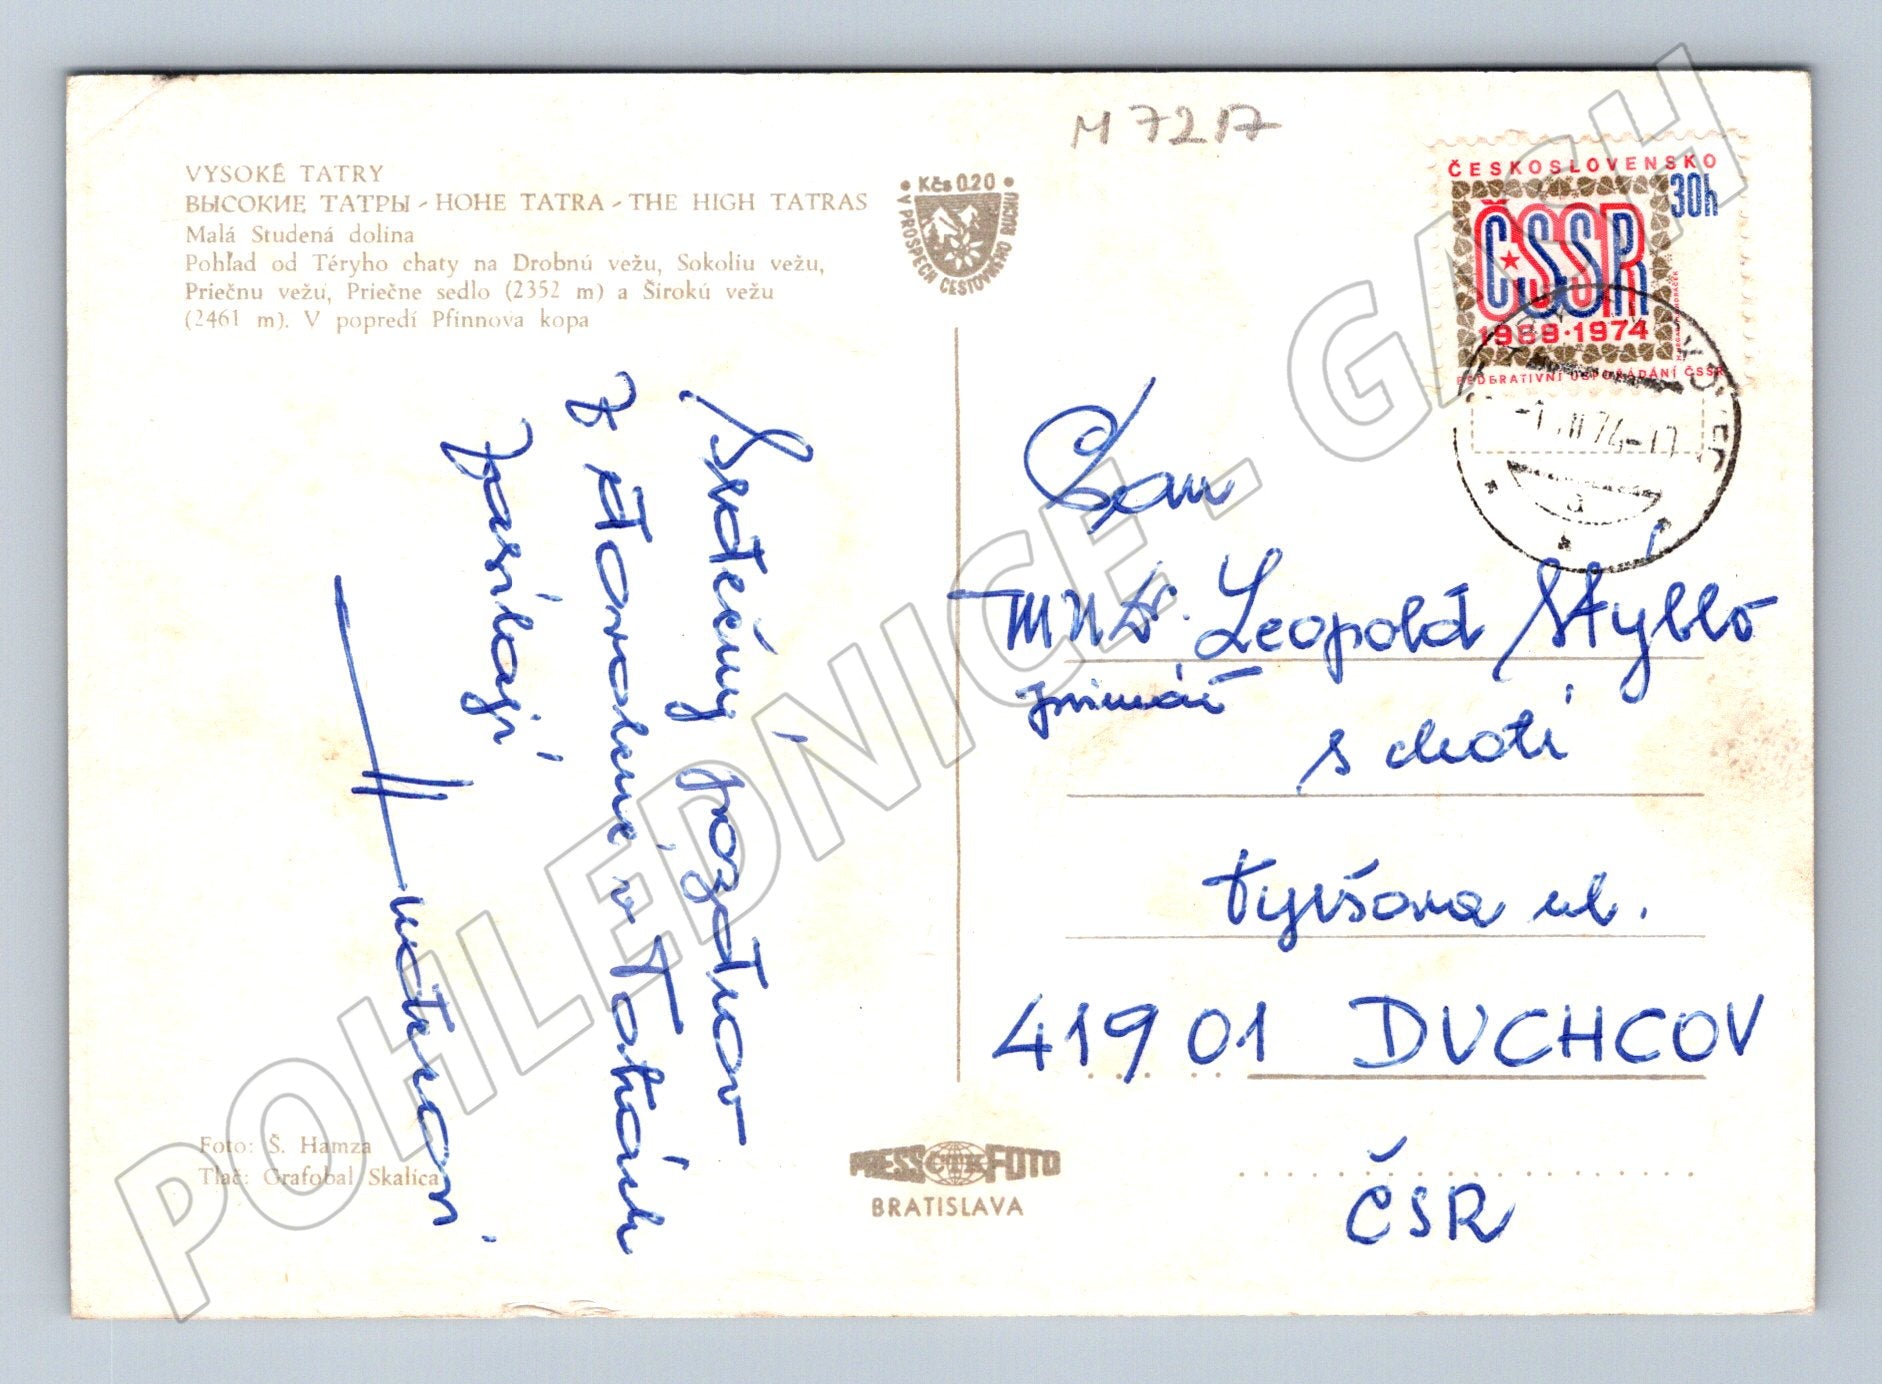 M 7217
VYSOKÉ TATRY
ВЫСОКИЕ ТАТРЫ - HOHE TATRA - THE HIGH TATRAS
Malá Studená dolina
Pohľad od Téryho chaty na Drobnú vežu, Sokoliu vežu,
Priečnu vežu, Priečne sedlo (2352 m) a Širokú vežu
(2461 m). V popredí Pfinnova kopa
Kčs 0.20
V PROSPECH CESTOVNÉHO RUCHU
ČESKOSLOVENSKO
30h
ČSSR
1969·1974
FEDERATIVNÍ USPOŘÁDÁNÍ ČSSR
Srdečný pozdrav
z dovolené v Tatrách
zasílají
Pan
MUDr. Leopold Stybló
primář
s chotí
Tyršova ul.
419 01 DUCHCOV
ČSR
Foto: Š. Hamza
Tlač: Grafobal Skalica
PRESSFOTO
BRATISLAVA
POHLEDNICE - GASH